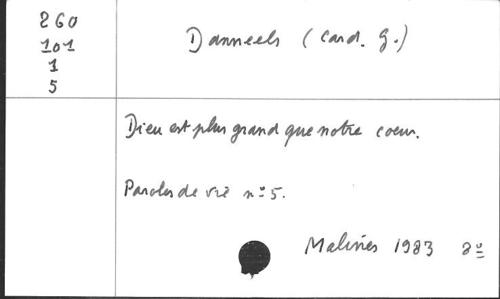 260
101
1
5
Danneels (Card. G.)
Dieu est plus grand que notre coeur.
Paroles de vie n° 5.
Malines 1983 8°